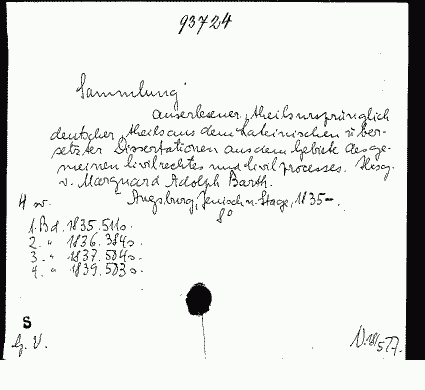 93724
Sammlung
auserlesener, theils ursprünglich
deutscher, theils aus dem Lateinischen über-
setzter Dissertationen aus dem Gebiete des ge-
meinen Civilrechtes und Civilprocesses. Hrsg.
v. Marquard Adolph Barth.
Augsburg, Jenisch u. Stage, 1835-.
8°
1. Bd. 1835. 511 s.
2. " 1836. 384 s.
3. " 1837. 504 s.
4. " 1839. 503 s.
S